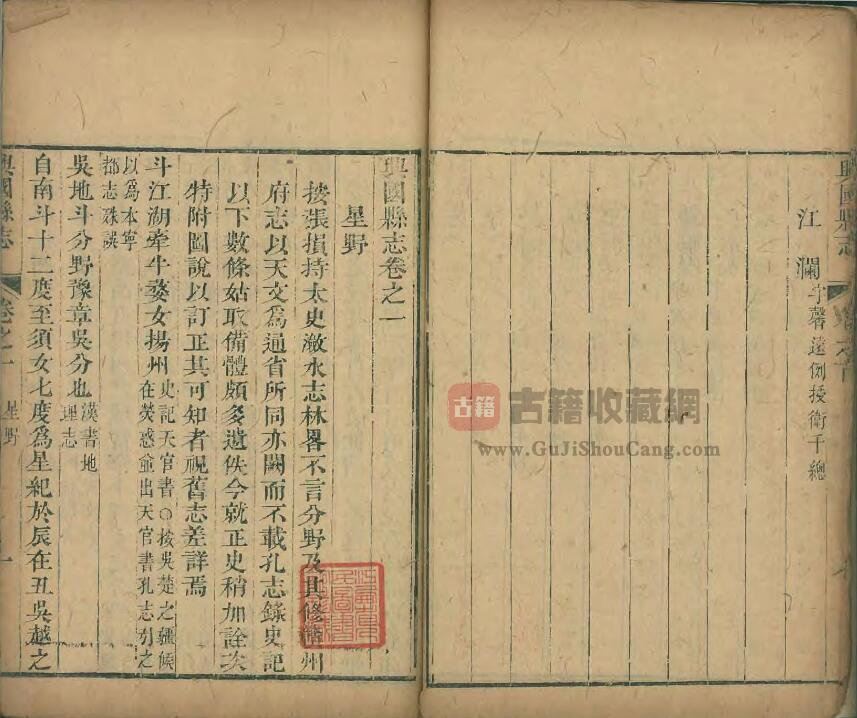 興國縣志
江瀾字馨遠例授衛千總
興國縣志卷之一
星野
按張損持太史瀲水志林畧不言分野及其修贛州
府志以天文爲通省所同亦闕而不載孔志錄史記
以下數條姑取備體頗多遺佚今就正史稍加詮次
特附圖說以訂正其可知者視舊志差詳焉
斗江湖牽牛婺女揚州史記天官書○按吳楚之疆候
在熒惑並出天官書孔志引之
以爲本寧
都志殊誤
吳地斗分野豫章吳分也漢書地
理志
自南斗十二度至須女七度爲星紀於辰在丑吳越之
興國縣志
卷之一
星野
一
古籍
古籍收藏網
www.GuJiShouCang.com